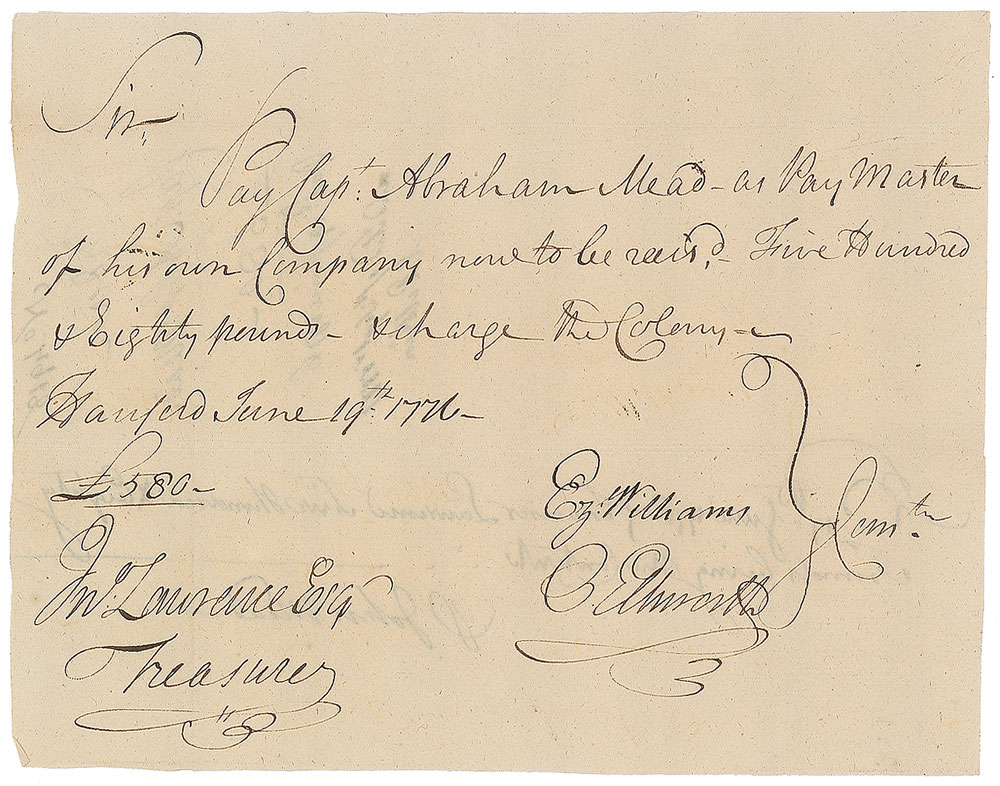 Sir,
Pay Capt. Abraham Mead - as Pay Master
of his own Company now to be reiisd, - Five Hundred
& Eighty pounds - & charge the Colony -
Harford June 19th. 1776 -
£580 -
Ez. Williams
O Ellsworth
Comtee
Jno. Lawrence Esqr
Treasurer